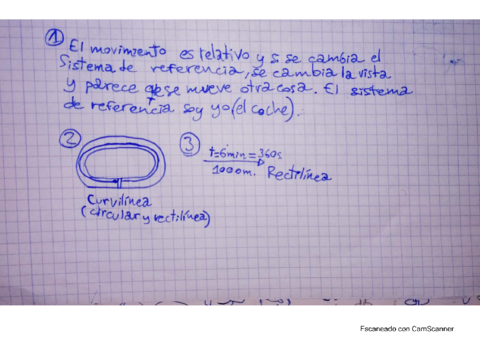 ① El movimiento es relativo y si se cambia el
sistema de referencia, se cambia la vista
y parece que se mueve otra cosa. El sistema
de referencia soy yo (el coche).
② ③ t=6min=360s
1000m. Rectilínea
Curvilínea
(circular y rectilínea)
Escaneado con CamScanner